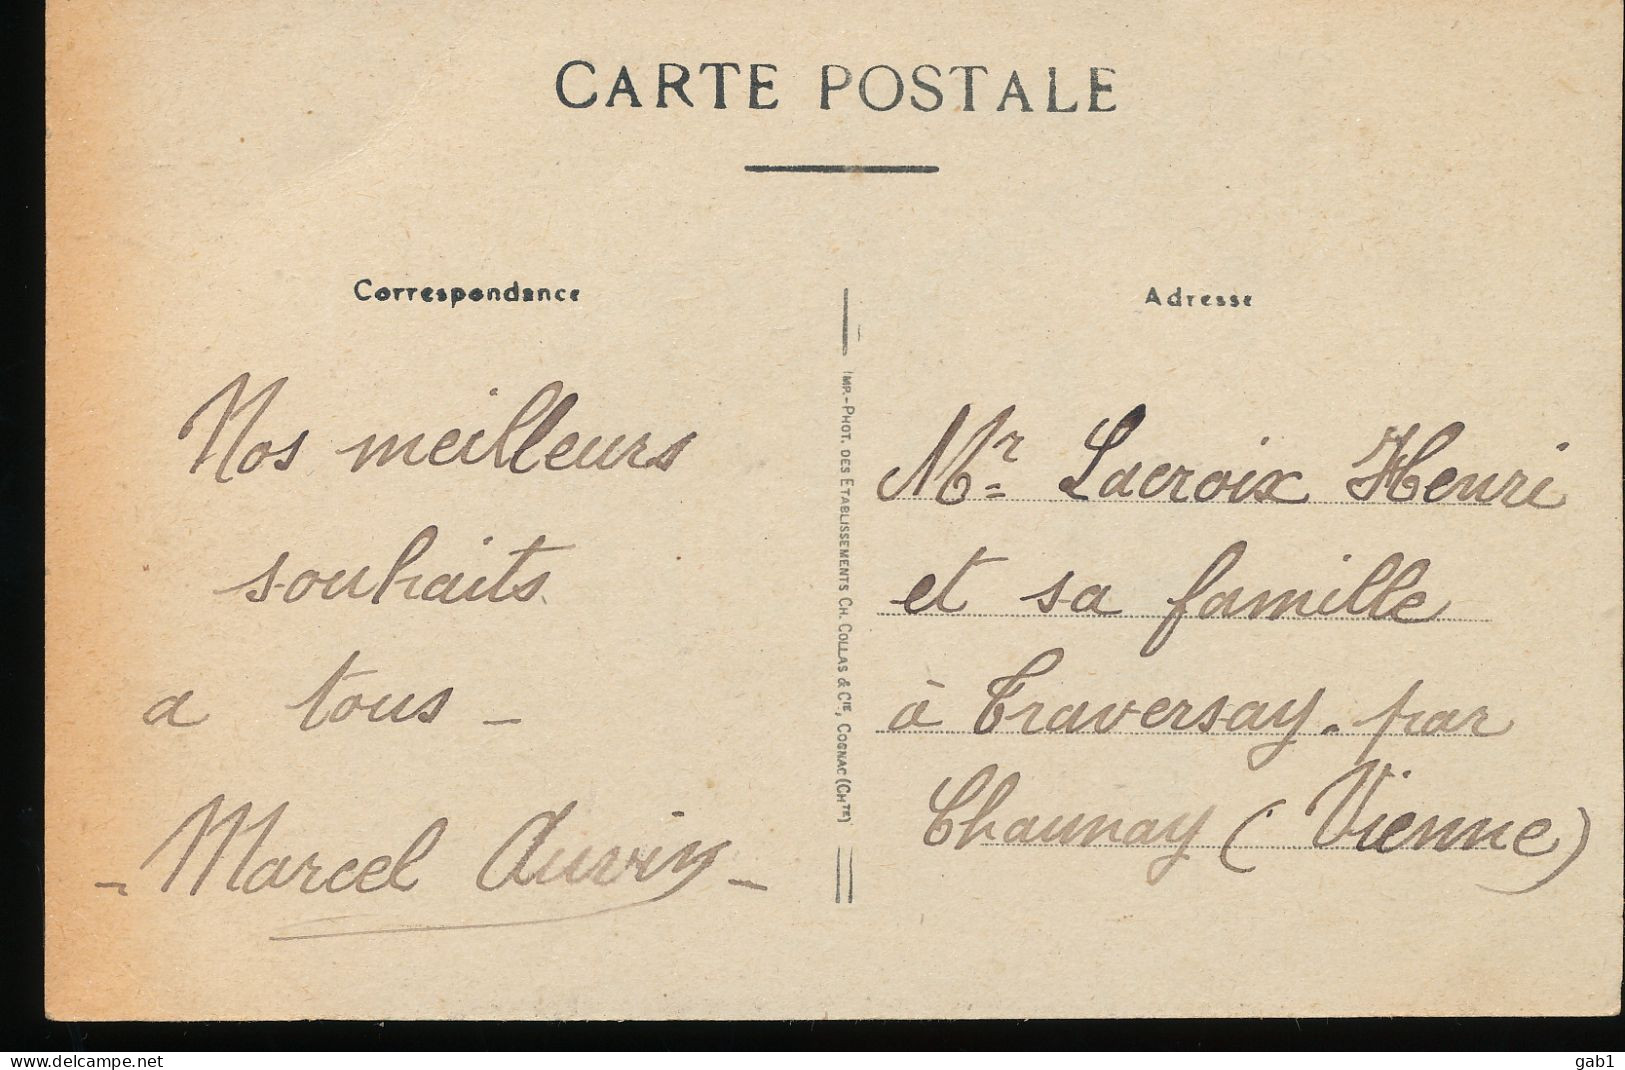 CARTE POSTALE
Correspondance
Nos meilleurs
souhaits
a tous -
- Marcel Auvin -
IMP.-PHOT. DES ETABLISSEMENTS CH. COLLAS & CIE, COGNAC (CHTE)
Adresse
Mr Lacroix Henri
et sa famille
à Traversay. par
Chaunay (Vienne)
www.delcampe.net
gab1